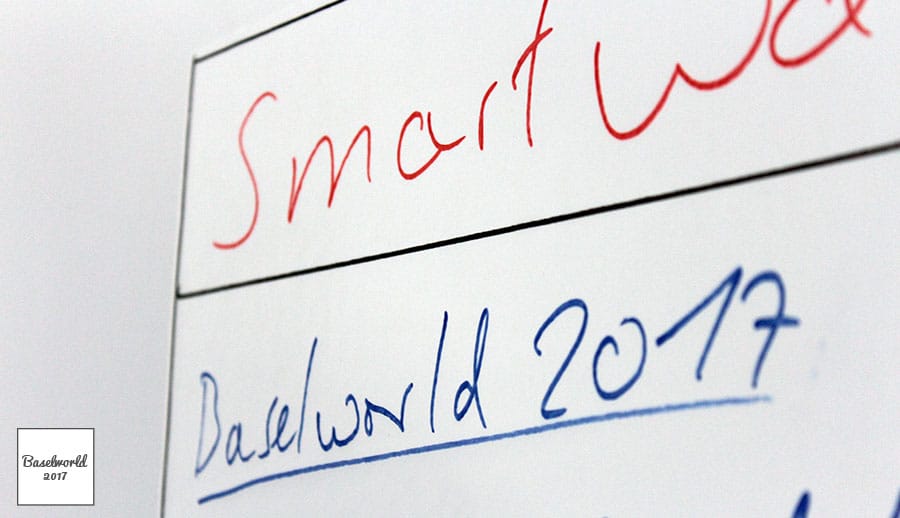 Smart Wa
Baselworld 2017
Baselworld
2017